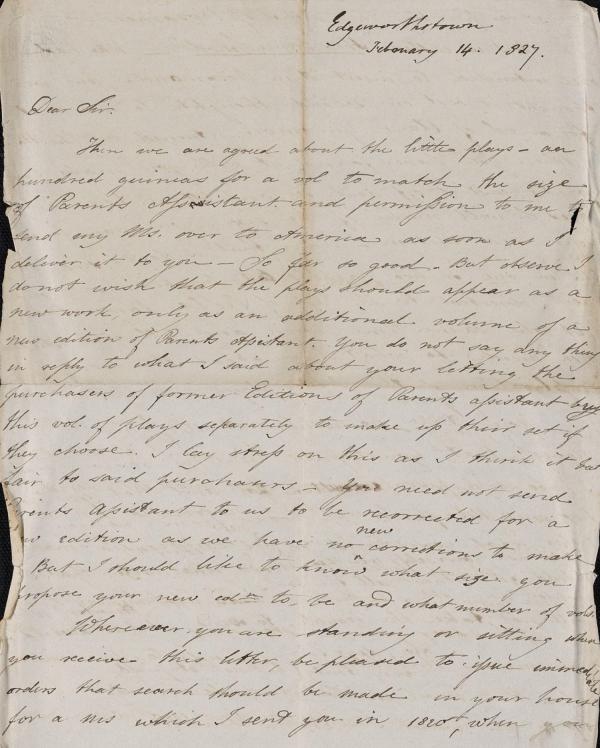 Edgeworthstown
February 14. 1827.
Dear Sir.
Then we are agreed about the little plays – an
hundred guineas for a vol to match the size
of Parents Assistant and permission to me to
send my Ms. over to America as soon as I
deliver it to you – So far so good – But observe I
do not wish that the plays should appear as a
new work, only as an additional volume of a
new edition of Parents Assistant. You do not say any thing
in reply to what I said about your letting the
purchasers of former Editions of Parents Assistant buy
this vol. of plays separately to make up their set if
they choose. I lay stress on this as I think it but
fair to said purchasers – You need not send
Parents Assistant to us to be recorrected for a
new edition as we have no new corrections to make
But I should like to know what size you
propose your new edn to be and what number of vols
Wherever you are standing or sitting when
you receive this letter, be pleased to issue immediate
orders that search should be made in your house
for a ms which I sent you in 1820, when you